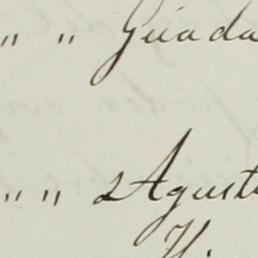 " " Guada
" " 2 Agust